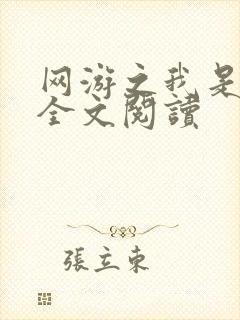 网游之我是
全文閱讀
張立東